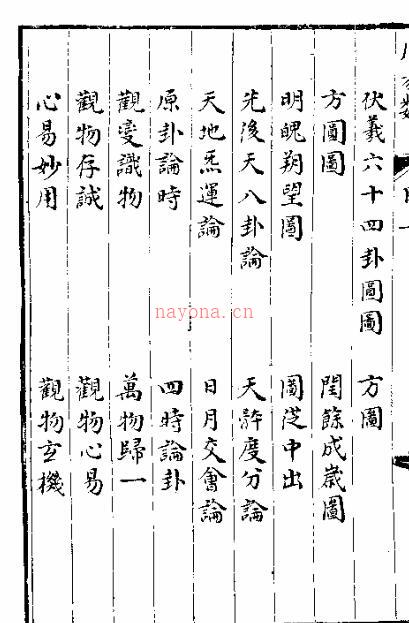 伏羲六十四卦圓圖 方圖
方圓圖 閏餘成歲圖
明魄朔望圖 圖從中出
先後天八卦論 天度分論
天地炁運論 日月交會論
原卦論時 四時論卦
觀變識物 萬物歸一
觀物存誠 觀物心易
心易妙用 觀物玄機
nayona.cn